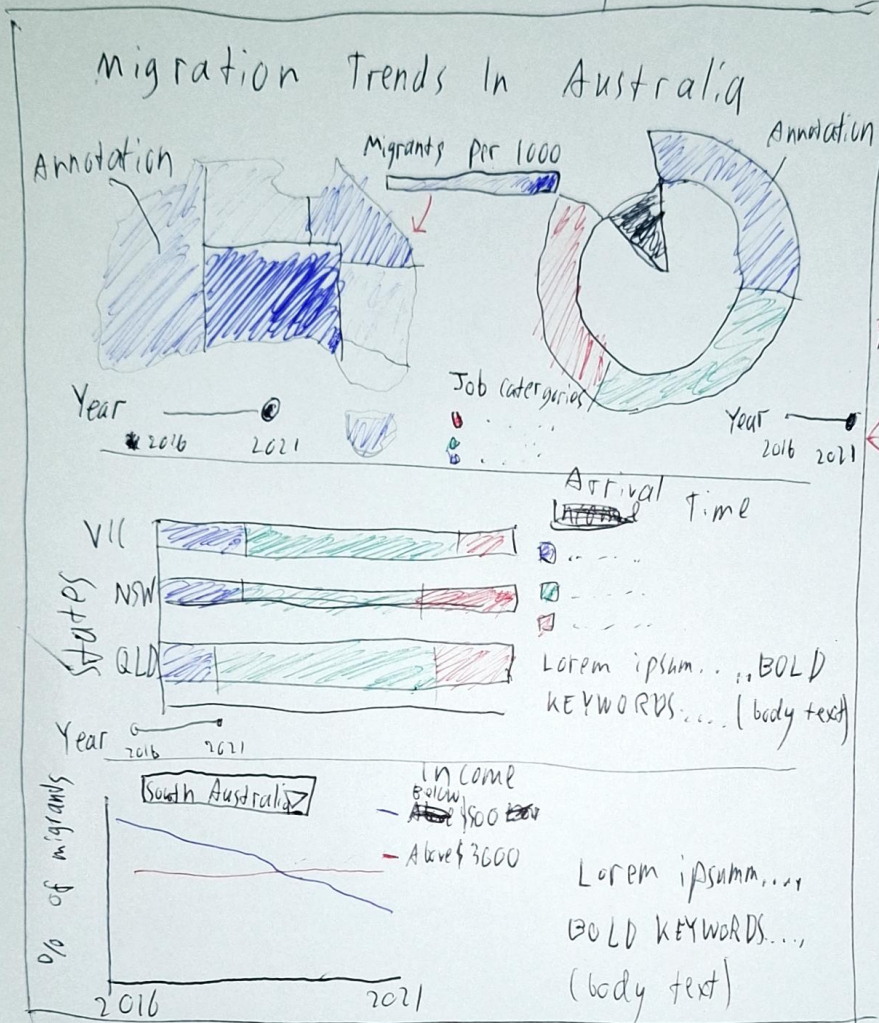 Migration Trends In Australia
Annotation
Migrants per 1000
Annotation
Year
2016 2021
Job catergories
Year
2016 2021
Arrival Time
States
VIC
NSW
QLD
Lorem ipsum.....BOLD
KEYWORDS..... (body text)
Year
2016 2021
% of migrants
South Australia
Income
Below
$500
Above $3000
Lorem ipsumm....,
BOLD KEYWORDS....,
(body text)
2016 2021